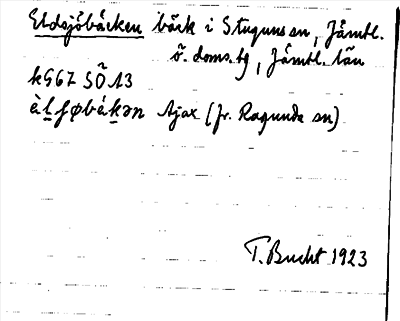 Eldsjöbäcken bäck i Stuguns sn, Jämtl.
ö. doms.tg, Jämtl. län
kG67 SÖ A3
Ajax (fr. Ragunda sn)
T. Bucht 1923